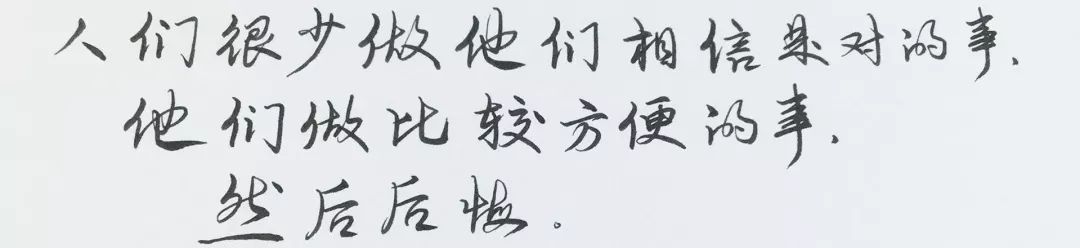 人们很少做他们相信是对的事,
他们做比较方便的事,
然后后悔。